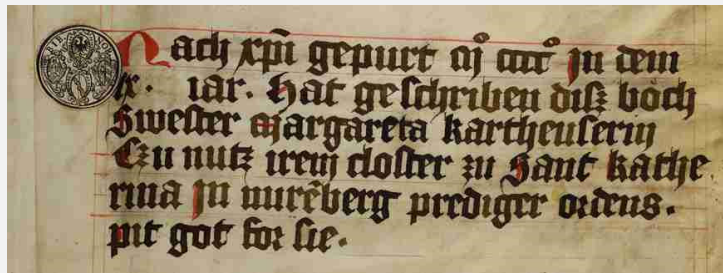 Nach xp̄i gepurt m° cccc° In dem
lx. iar. Hat geſchriben diſz bůch
Sweſter Margareta kartheuſerin
Czu nutz irem cloſter zu Sant kathe
rina In nurēberg prediger ordens.
pit got for ſie.